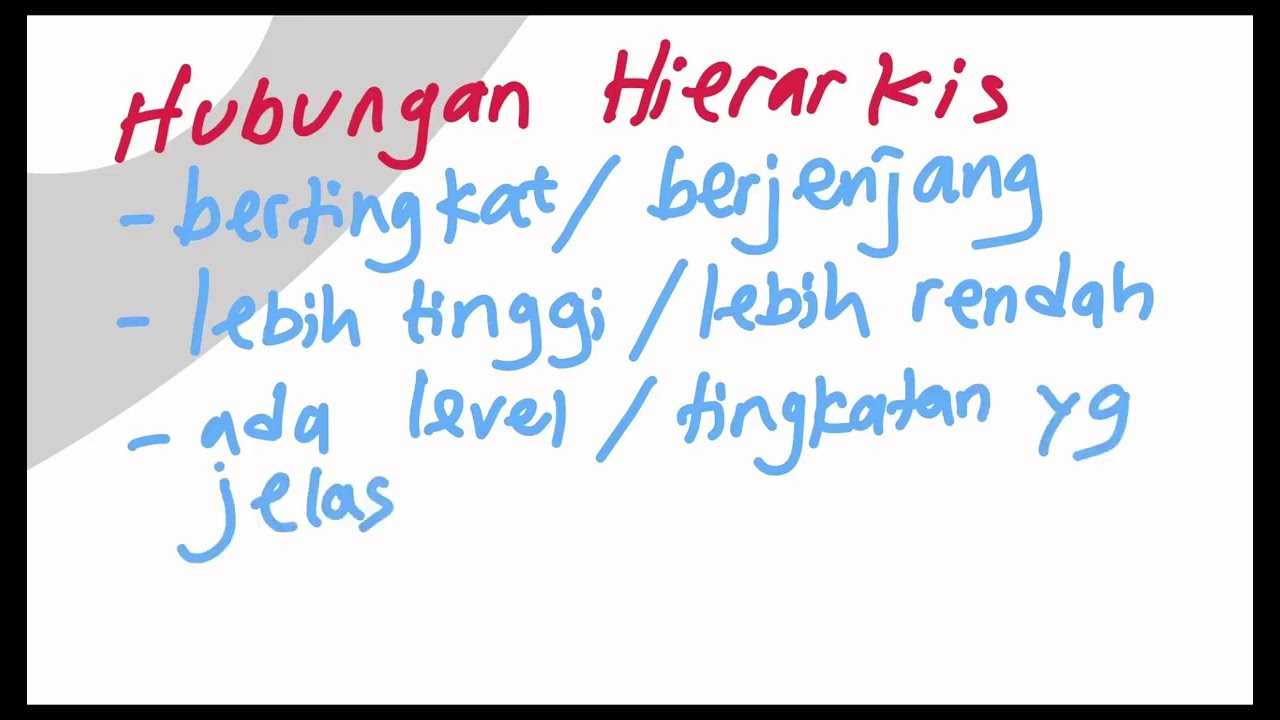 Hubungan Hierarkis
- bertingkat / berjenjang
- lebih tinggi / lebih rendah
- ada level / tingkatan yg
jelas